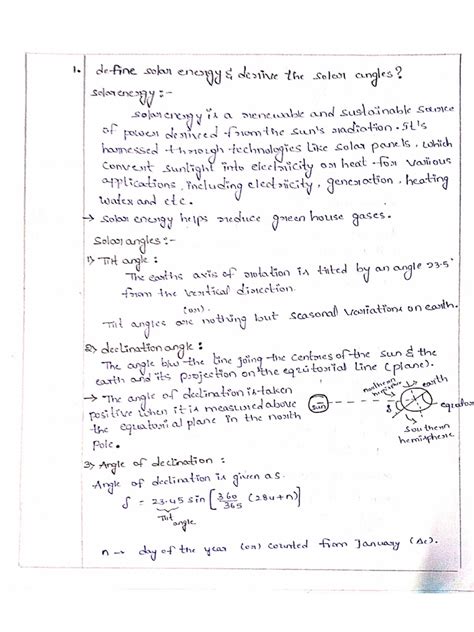 1. define solar energy & derive the solar angles?
solar energy :-
solar energy is a renewable and sustainable source
of power derived from the sun's radiation. it's
harnessed through technologies like solar panels, which
convert sunlight into electricity or heat for various
applications, including electricity, generation, heating
water and etc.
→ solar energy helps reduce green house gases.
solar angles :-
1) Tilt angle :
The earths axis of rotation is tilted by an angle 23.5°
from the vertical direction.
(or).
Tilt angles are nothing but seasonal variations on earth.
2) declination angle :
The angle b/w the line joing the centres of the sun & the
earth and its projection on the equitorial line (plane).
→ The angle of declination is taken
positive when it is measured above
the equatorial plane in the north
Pole.
sun
northern
hemisphere
earth
δ
equator
southern
hemisphere
3) Angle of declination :
Angle of declination is given as
δ = 23.45 sin [360/365 (284+n)]
Tilt
angle
n → day of the year (or) counted from January